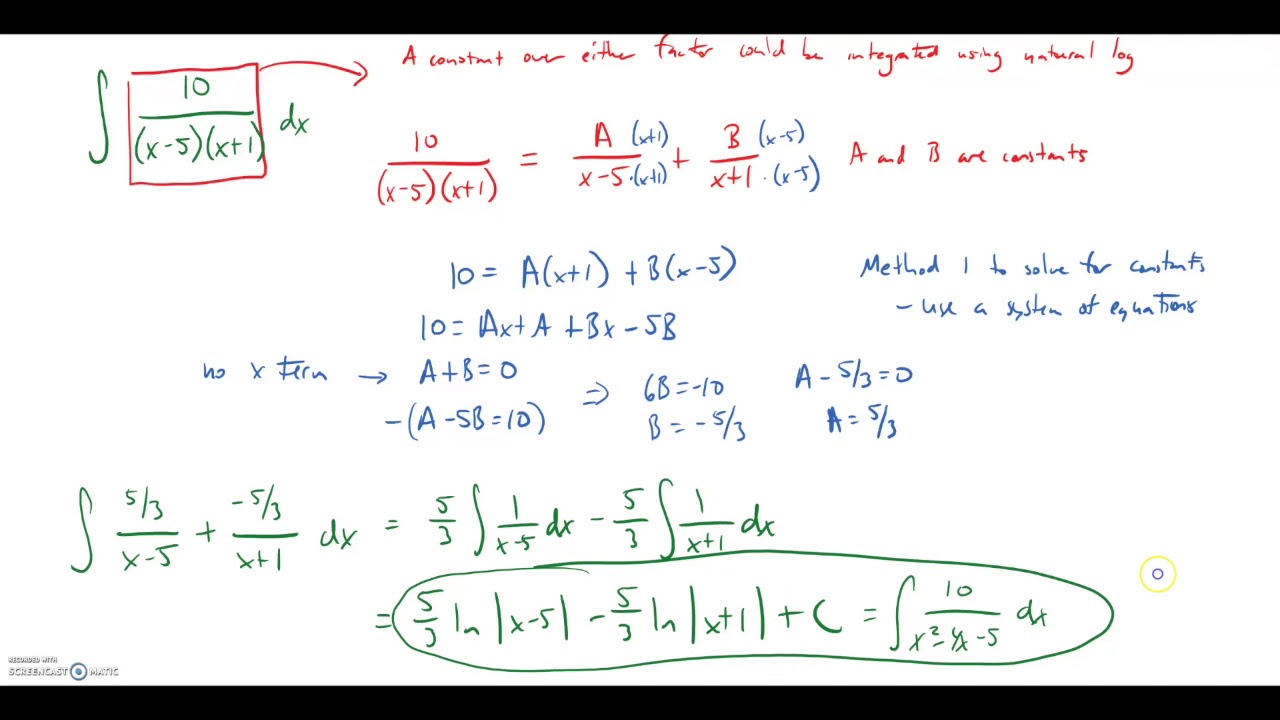 A constant over either factor could be integrated using natural log
∫ 10/((x-5)(x+1)) dx
10/((x-5)(x+1)) = A (x+1)/(x-5 · (x+1)) + B (x-5)/(x+1 · (x-5)) A and B are constants
10 = A(x+1) + B(x-5) Method 1 to solve for constants
10 = Ax + A + Bx - 5B - use a system of equations
no x term → A + B = 0 ⇒ 6B = -10 A - 5/3 = 0
-(A - 5B = 10) B = -5/3 A = 5/3
∫ (5/3)/(x-5) + (-5/3)/(x+1) dx = 5/3 ∫ 1/(x-5) dx - 5/3 ∫ 1/(x+1) dx
= 5/3 ln |x-5| - 5/3 ln |x+1| + C = ∫ 10/(x² - 4x - 5) dx
RECORDED WITH
SCREENCAST MATIC